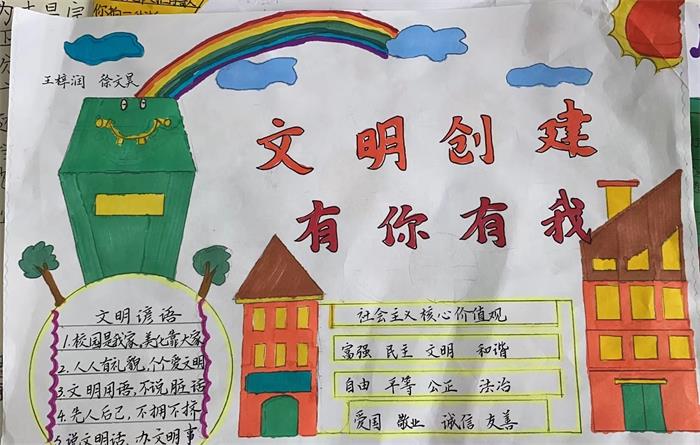 王梓润 徐文昊
文明创建
有你有我
文明谚语
1.校园是我家,美化靠大家
2.人人有礼貌,个个爱文明
3.文明用语,不说脏话
4.先人后己,不拥不挤
5.说文明话,办文明事
社会主义核心价值观
富强 民主 文明 和谐
自由 平等 公正 法治
爱国 敬业 诚信 友善